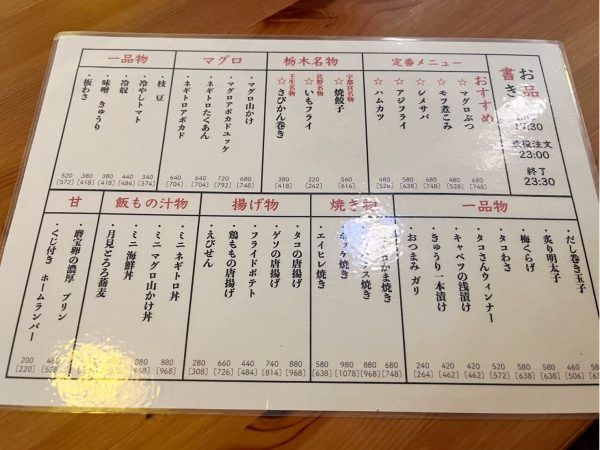 お品書き
17:30
注文
23:00
終了
23:30
定番メニュー
おすすめ
☆マグロぶつ
680
[748]
☆モツ煮こみ
480
[528]
☆シメサバ
680
[748]
☆アジフライ
580
[638]
☆ハムカツ
480
[528]
栃木名物
宇都宮名物
☆焼餃子
560
[616]
佐野名物
☆いもフライ
220
[242]
壬生名物
☆さびかん巻き
380
[418]
マグロ
・マグロ山かけ
680
[748]
・マグロアボカドユッケ
720
[792]
・ネギトロたくあん
640
[704]
・ネギトロアボカド
640
[704]
一品物
・枝豆
340
[374]
・冷やしトマト
440
[484]
・冷奴
380
[418]
・味噌きゅうり
380
[418]
・板わさ
520
[572]
一品物
・だし巻き玉子
580
・炙り明太子
460
[506]
・梅くらげ
580
[638]
・タコわさ
580
[638]
・タコさんウィンナー
520
[572]
・キャベツの浅漬け
420
[462]
・きゅうり一本漬け
420
[462]
・おつまみ ガリ
240
[264]
焼き物
かま焼き
680
[748]
ス焼き
880
[968]
ッケ焼き
980
[1078]
・エイヒレ焼き
580
[638]
揚げ物
・タコの唐揚げ
880
[968]
・ゲソの唐揚げ
740
[814]
・フライドポテト
440
[484]
・鶏ももの唐揚げ
660
[726]
・えびせん
280
[308]
飯もの汁物
・ミニ ネギトロ丼
880
[968]
・ミニ マグロ山かけ丼
880
[968]
・ミニ 海鮮丼
・月見とろろ蕎麦
甘
・磨宝卵の濃厚 プリン
・くじ付き ホームランバー
200
[220]